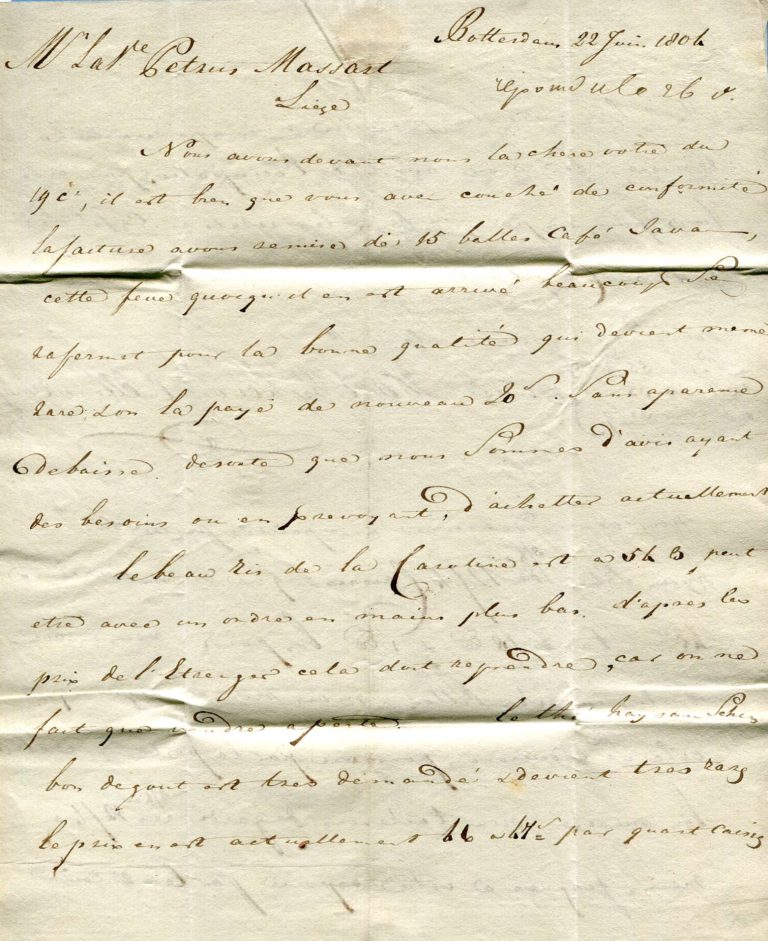 Rotterdam 22 Juin 1804
Mr La Ve Petrus Massart
repondu le 26 d.
Liége
Nous avons devant nous la chere votre du
19 ct, il est bien que vous avez couché de conformité
la facture avous remise des 15 balles Café Java,
cette feve quoiqu'il en est arrivé beaucoup Se
rafermit pour la bonne qualité qui devient meme
rare L'on la payé de nouveau 20 Sans aparence
de baisse desorte que nous Sommes d'avis ayant
des besoins ou en prevoyant, d'achetter actuellement
le beau Ris de la Caroline est a 54 peut
etre avec un ordre en mains plus bas. d'après les
prix de l'Etranger cela doit reprendre, car on ne
fait que vendre a perte. le thé haysan Schin
bon degout est tres demandé & devient tres rare
le prix en est actuellement 46 a 47 par quart caisse